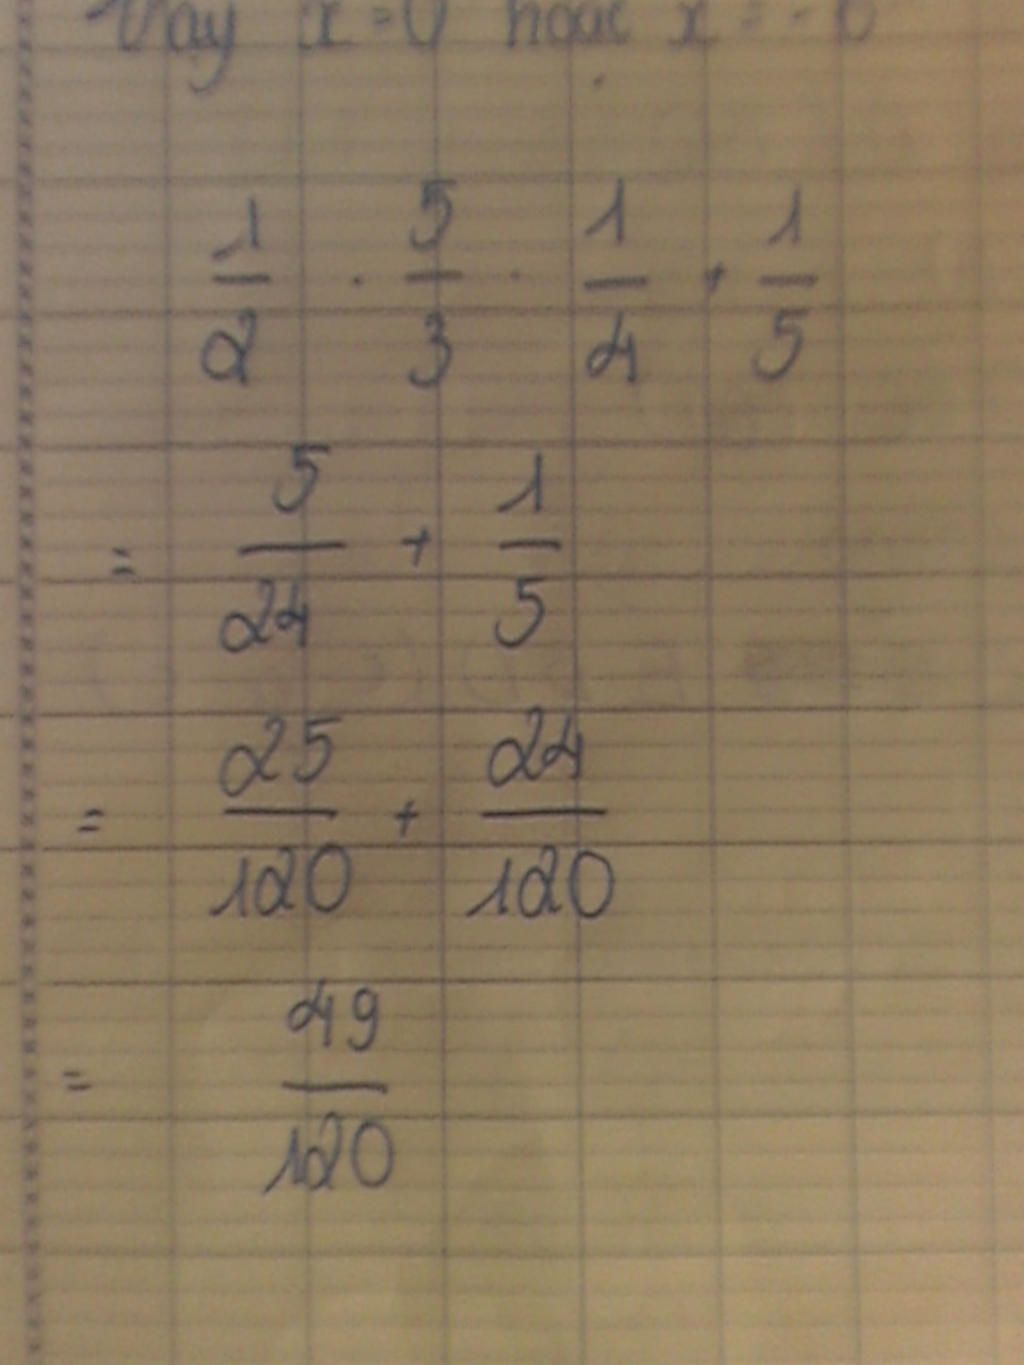 Vậy x = 0 hoặc x =
1/2 . 5/3 . 1/4 + 1/5
= 5/24 + 1/5
= 25/120 + 24/120
= 49/120